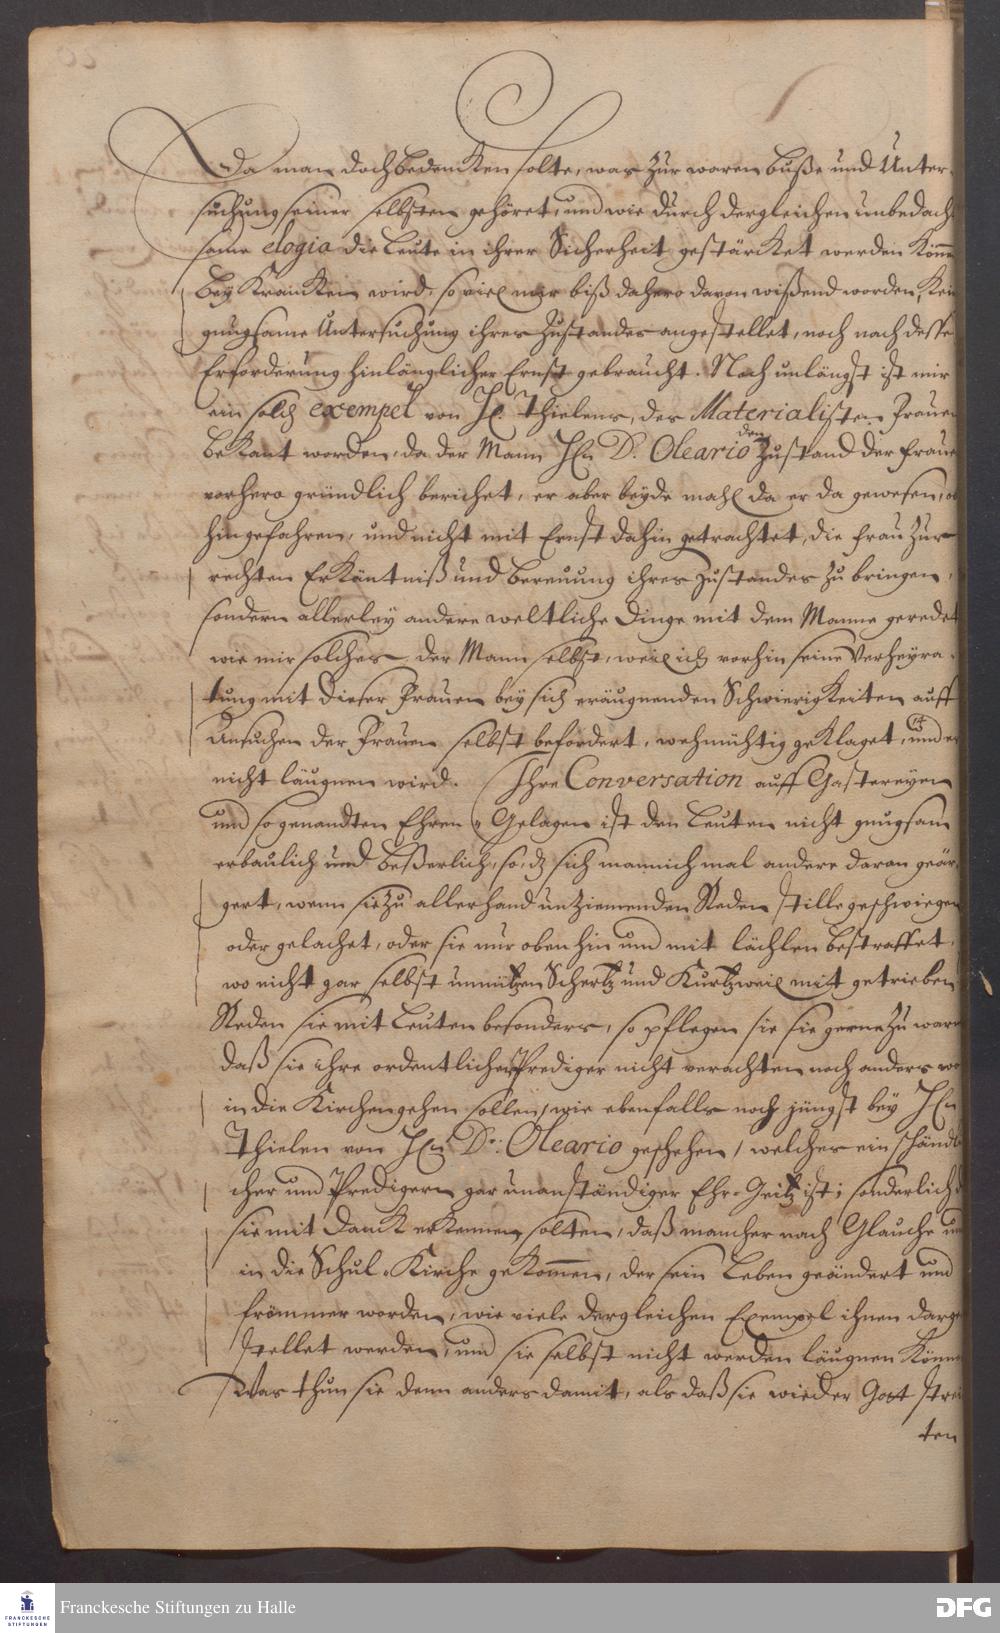 Da man doch bedencken solte, was zur waren Buße und Unter-
suchung seiner selbsten gehöret, und wie durch dergleichen unbedacht
same elogia die Leute in ihrer Sicherheit gestärcket werden könn
Bey Krancken wird, so viel mir biß dahero davon wißend worden, kein
gnugsame Untersuchung ihres Zustandes angestellet, noch nach deße
Erforderung hinlänglicher Ernst gebraucht. Noch unlängst ist mir
ein solch exempel von H. Thielens, des Materialisten Frauen
bekant worden, da der Mann Hn D. Oleario den Zustand der Frau
vorhero gründlich berichtet, er aber beyde mahl da er da gewesen,
hingefahren, und nicht mit Ernst dahin getrachtet, die Frau zur
rechten Erkäntniß und Bereuung ihres Zustandes zu bringen,
sondern allerley andere weltliche Dinge mit dem Manne geredet
wie mir solches der Mann selbst, weil ich vorhin seine Verheyra-
tung mit dieser Frauen bey sich eräugnenden Schwierigkeiten auff
Ansuchen der Frauen selbst befordert, wehmühtig geklaget, und er
nicht läugnen wird. Ihre Conversation auff Gastereyen
und so genandten Ehren-Gelagen ist den Leuten nicht gnugsam
erbaulich und beßerlich, so, dz sich mannichmal andere daran geär-
gert, wenn sie zu allerhand unziemenden Reden stille geschwiegen
oder gelachet, oder sie nur obenhin und mit lächlen bestraffet,
wo nicht gar selbst unnützen Schertz und Kurtzweil mit getrieben
Reden sie mit Leuten besonders, so pflegen sie sie gerne zu warn
daß sie ihre ordentlichen Prediger nicht verachten noch anders wo
in die Kirchen gehen sollen, wie ebenfalls noch jüngst bey Hn
Thielen von Hn Dr. Oleario geschehen, welches ein schändl
cher und Predigern gar unanständiger Ehr-Geitz ist; sonderlich
sie mit Danck erkennen solten, daß mancher nach Glauche
in die Schul-Kirche gekommen, der sein Leben geändert und
frömmer worden, wie viele dergleichen Exempel ihnen darge
stellet werden, und sie selbst nicht werden läugnen könn
Was thun sie denn anders damit, als daß sie wieder Gott strei
ten
Franckesche Stiftungen zu Halle
FRANCKESCHE
STIFTUNGEN
DFG